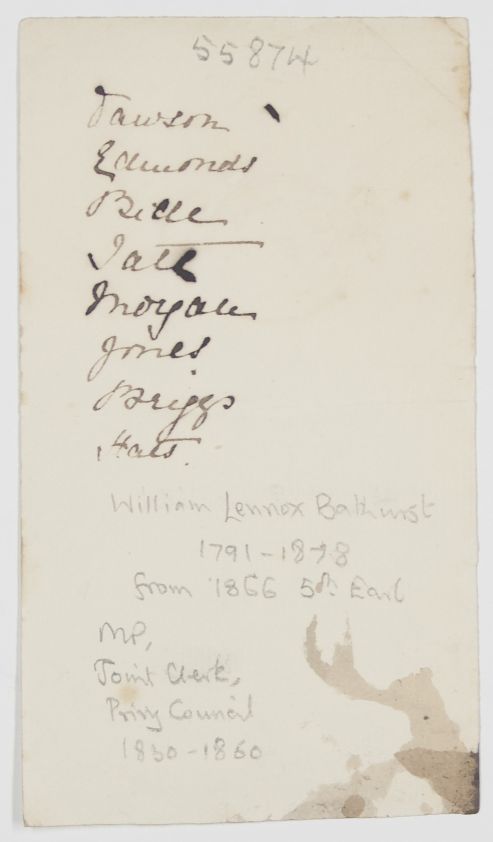 55874
Dawson
Edmonds
Belle
Tate
Morgan
Jones
Briggs
Hats.
William Lennox Bathurst
1791-1878
from 1866 5th Earl
MP,
Joint Clerk,
Privy Council
1830-1860